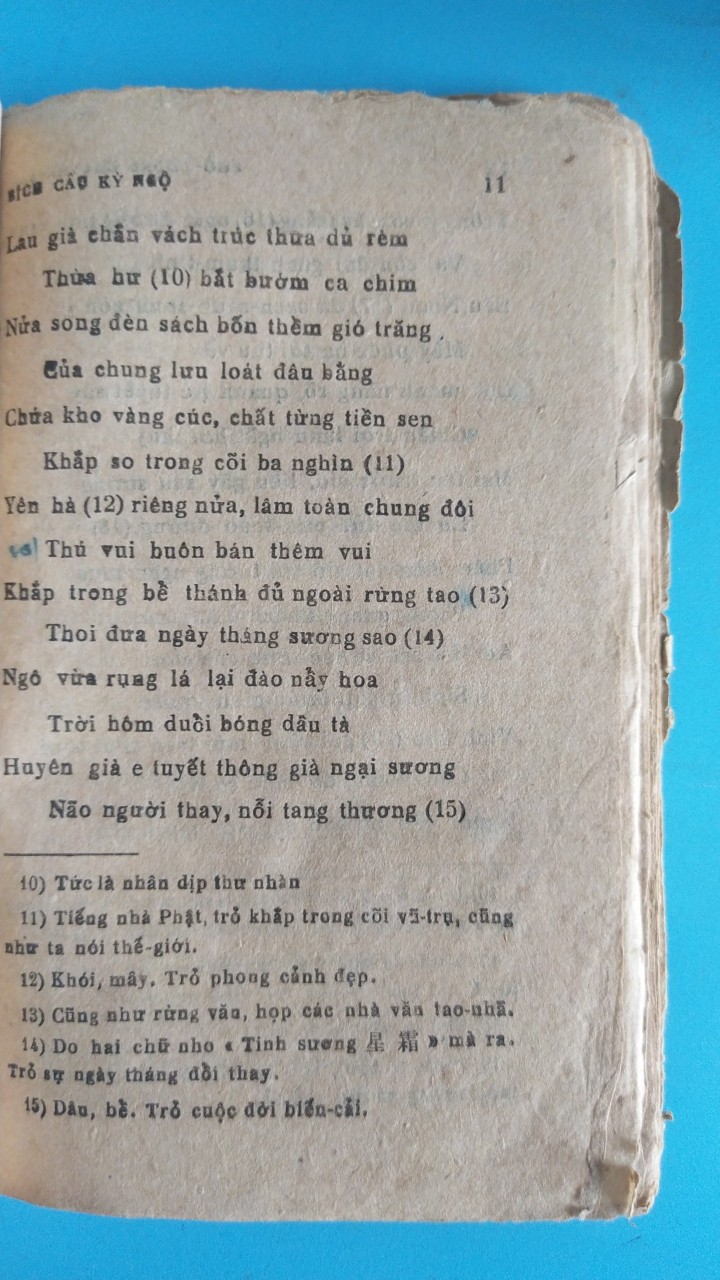 BÍCH CẦU KỲ NGỘ 11
Lau già chắn vách trúc thưa dủ rèm
Thừa hư (10) bắt bướm ca chim
Nửa song đèn sách bốn thềm gió trăng
Của chung lưu loát đâu bằng
Chứa kho vàng cúc, chất từng tiền sen
Khắp so trong cõi ba nghìn (11)
Yên hà (12) riêng nửa, lâm toàn chung đôi
Thú vui buôn bán thêm vui
Khắp trong bể thánh đủ ngoài rừng tao (13)
Thoi đưa ngày tháng sương sao (14)
Ngô vừa rụng lá lại đào nẩy hoa
Trời hôm duổi bóng dâu tà
Huyên già e tuyết thông già ngại sương
Não người thay, nỗi tang thương (15)
10) Tức là nhân dịp thư nhàn
11) Tiếng nhà Phật, trỏ khắp trong cõi vũ-trụ, cũng
như ta nói thế-giới.
12) Khói, mây. Trỏ phong cảnh đẹp.
13) Cũng như rừng văn, họp các nhà văn tao-nhã.
14) Do hai chữ nho « Tinh sương 星 霜 » mà ra.
Trỏ sự ngày tháng đổi thay.
15) Dâu, bể. Trỏ cuộc đời biến-cải.